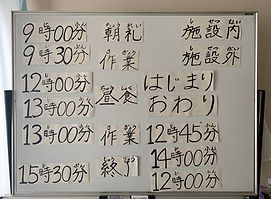 9時00分 朝礼 施設内
9時30分 作業 施設外
12時00分 昼食 はじまり
13時00分 おわり
13時00分 作業 12時45分
15時30分 終了 14時00分
12時00分